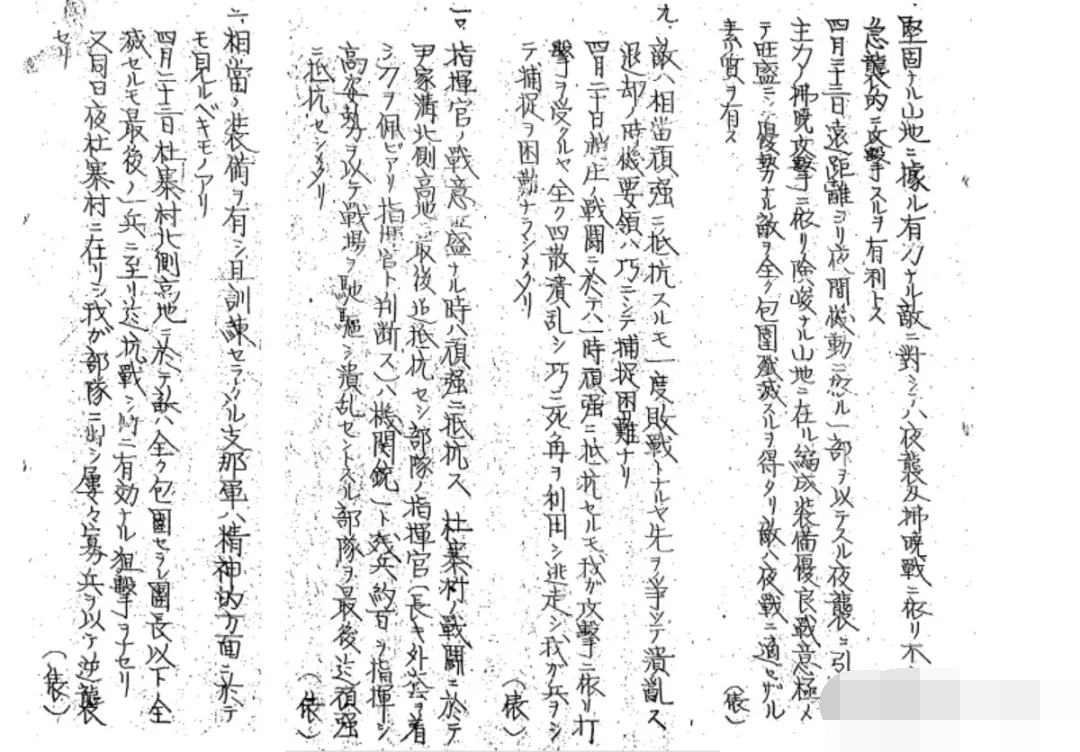 堅固ナル山地ニ據ル有力ナル敵ニ對シテハ夜襲及拂曉戰ニ依リ不
急襲的ニ攻撃スルヲ有利トス
四月二十三日遠距離ヨリ夜間機動ニ依ル一部ヲ以テスル夜襲ニ引
主力ノ拂曉攻撃ニ依リ險峻ナル山地ニ在ル編成裝備優良戰意極メ
テ旺盛ニシ優勢ナル敵ヲ全ク包圍殲滅スルヲ得タリ敵ハ夜戰ニ適セザル
素質ヲ有ス
(俵)
九、敵ハ相當頑强ニ抵抗スルモ一度敗戰トナルヤ先ヲ爭ツテ潰亂ス
退却ノ時機要領ハ巧ニシテ捕捉困難ナリ
四月二十日 庄ノ戰鬪ニ於テハ一時頑强ニ抵抗セルモ我ガ攻撃ニ依リ打
撃ヲ受クルヤ全ク四散潰乱シ巧ニ死角ヲ利用シ逃走シ我ガ兵ヲシ
テ捕捉ヲ困難ナラシメタリ
(俵)
一〇、指揮官ノ戰意旺盛ナル時ハ頑强ニ抵抗ス 杜寨村ノ戰鬪ニ於テ
尹家溝北側高地ニ最後迄抵抗セシ部隊ノ指揮官(長キ外套ヲ着
シ刀ヲ佩ビアリ指揮官ト判断ス)ハ機関銃一ト残兵約百ヲ指揮シ
高姿勢ヲ以テ戰場ヲ馳驅シ潰乱セントスル部隊ヲ最後迄頑强
ニ抵抗セシメタリ
(俵)
二、相當ノ裝備ヲ有シ且訓練セラレタル支那軍ハ精神的方面ニ於テ
モ見ルベキモノアリ
四月二十三日杜寨村北側高地ニ於テ敵ハ全ク包圍セラレ團長以下全
滅セルモ最後ノ一兵ニ至リ迄抗戰シ 有効ナル狙撃ヲナセリ
又同日夜杜寨村ニ在リシ我ガ部隊ニ對シ屢々寡兵ヲ以テ逆襲
セリ
(俵)